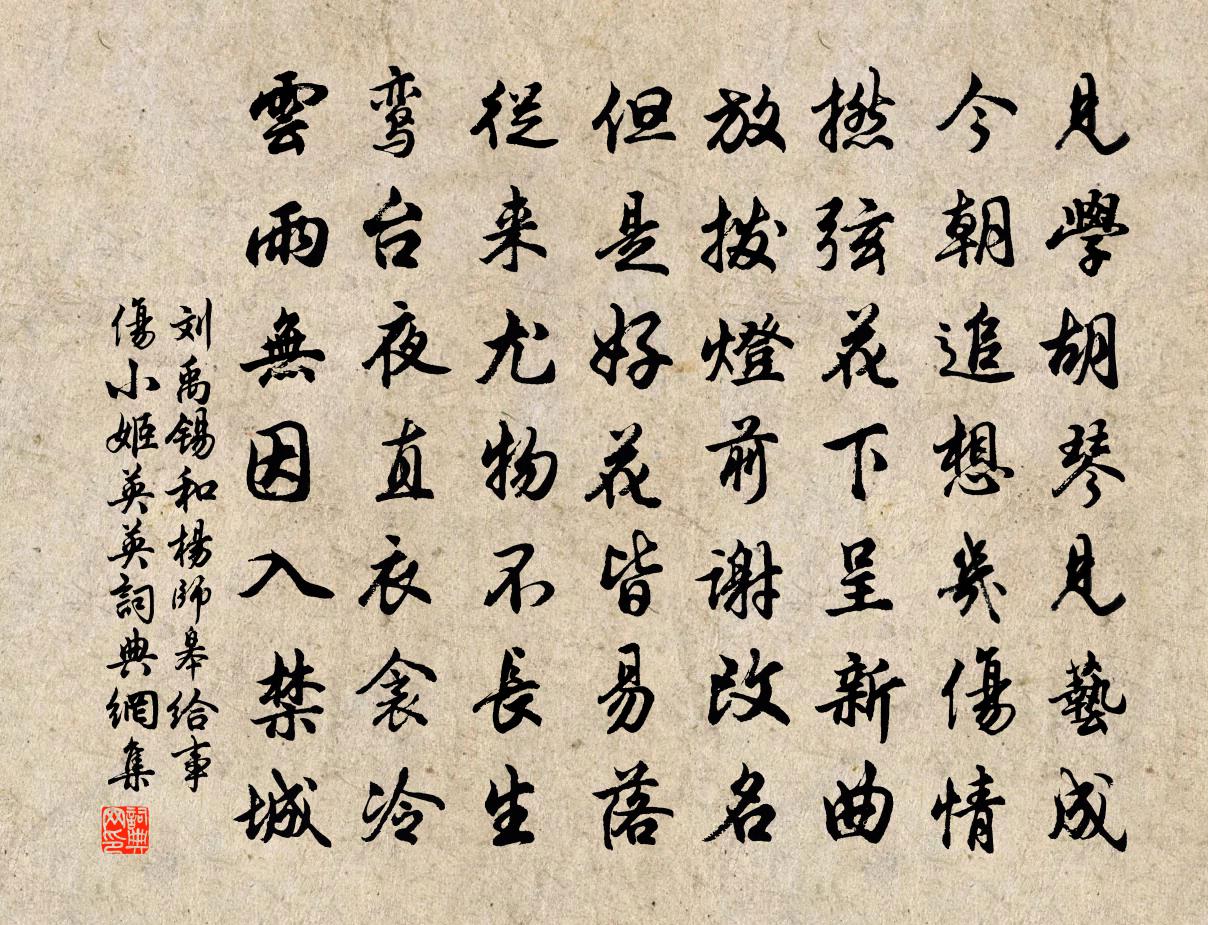 見學胡琴見藝成
今朝追想幾傷情
撚弦花下呈新曲
放撥燈前謝改名
但是好花皆易落
從来尤物不長生
鸾台夜直衣衾冷
雲雨無因入禁城
刘禹锡和楊師皋给事
傷小姬英英詞典網集
詞典网印